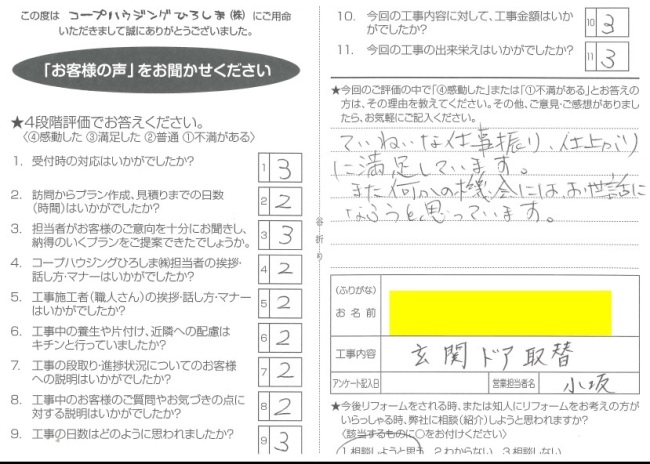 この度は コープハウジングひろしま(株) にご用命
いただきまして誠にありがとうございました。
「お客様の声」をお聞かせください
★4段階評価でお答えください。
〈④感動した ③満足した ②普通 ①不満がある〉
1. 受付時の対応はいかがでしたか?
1 3
2. 訪問からプラン作成、見積りまでの日数
(時間)はいかがでしたか?
2 2
3. 担当者がお客様のご意向を十分にお聞きし、
納得のいくプランをご提案できたでしょうか。
3 3
4. コープハウジングひろしま㈱担当者の挨拶・
話し方・マナーはいかがでしたか?
4 2
5. 工事施工者(職人さん)の挨拶・話し方・マナー
はいかがでしたか?
5 2
6. 工事中の養生や片付け、近隣への配慮は
キチンと行っていましたか?
6 2
7. 工事の段取り・進捗状況についてのお客様
への説明はいかがでしたか?
7 2
8. 工事中のお客様のご質問やお気づきの点に
対する説明はいかがでしたか?
8 2
9. 工事の日数はどのように思われましたか?
9 3
谷折り
10. 今回の工事内容に対して、工事金額はいか
がでしたか?
10 3
11. 今回の工事の出来栄えはいかがでしたか?
11 3
★今回のご評価の中で「④感動した」または「①不満がある」とお答えの
方は、その理由を教えてください。その他、ご意見・ご感想がありました
ら、お気軽にご記入ください。
ていねいな仕事振り、仕上がり
に満足しています。
また何かの機会にはお世話に
なろうと思っています。
(ふりがな)
お名前
工事内容 玄関ドア取替
アンケート記入日 営業担当者名 小坂
★今後リフォームをされる時、または知人にリフォームをお考えの方が
いらっしゃる時、弊社に相談(紹介)しようと思われますか?
〈該当するものに○をお付けください〉
1.相談しようと思う 2.わからない 3.相談しない